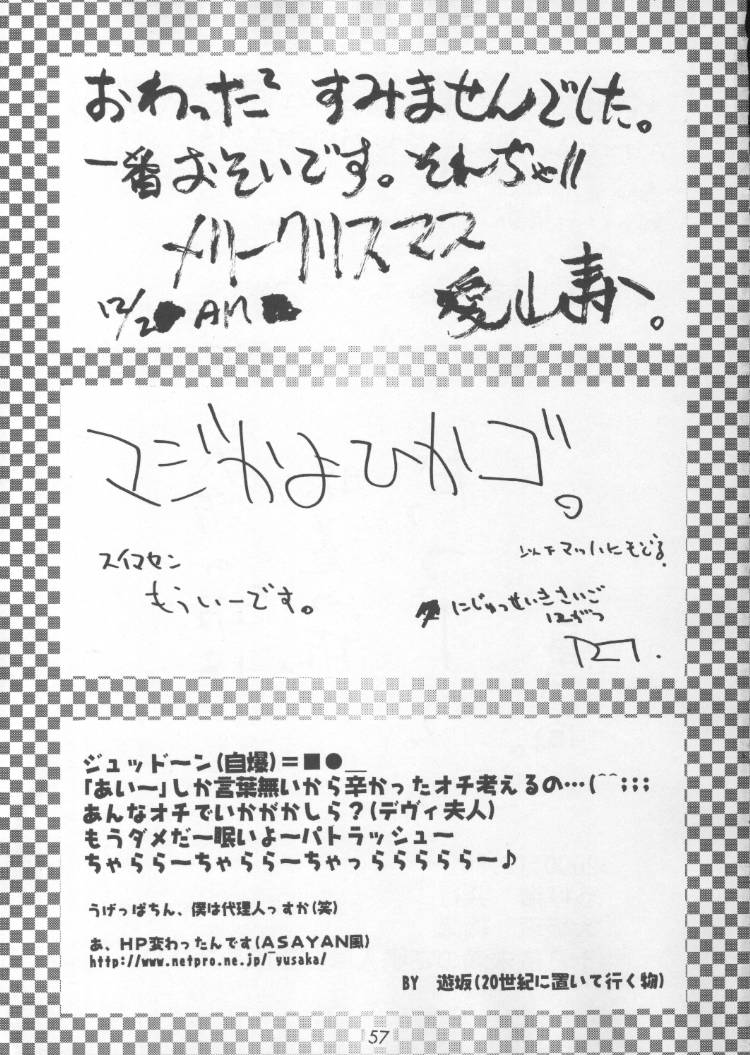 おわったで すみませんでした。
一番おそいです。それぢゃ!!
メリークリスマス
12/2 AM
愛山寿一。
マジかよひかゴ。
スイマセン
もういーです。
にじゅっせいきさいご
12がつ
ジュッドーン(自爆)=■●＿
「あい〜」しか言葉無いから辛かったオチ考えるの…(⌒⌒;;;
あんなオチでいかがかしら？(デヴィ夫人)
もうダメだー眠いよーパトラッシュー
ちゃららーちゃららーちゃっらららららー♪
うげっぱちん、僕は代理人っすか(笑)
あ、HP変わったんです(ASAYAN風)
http://www.netpro.ne.jp/~yusaka/
BY 遊坂(20世紀に置いて行く物)
57